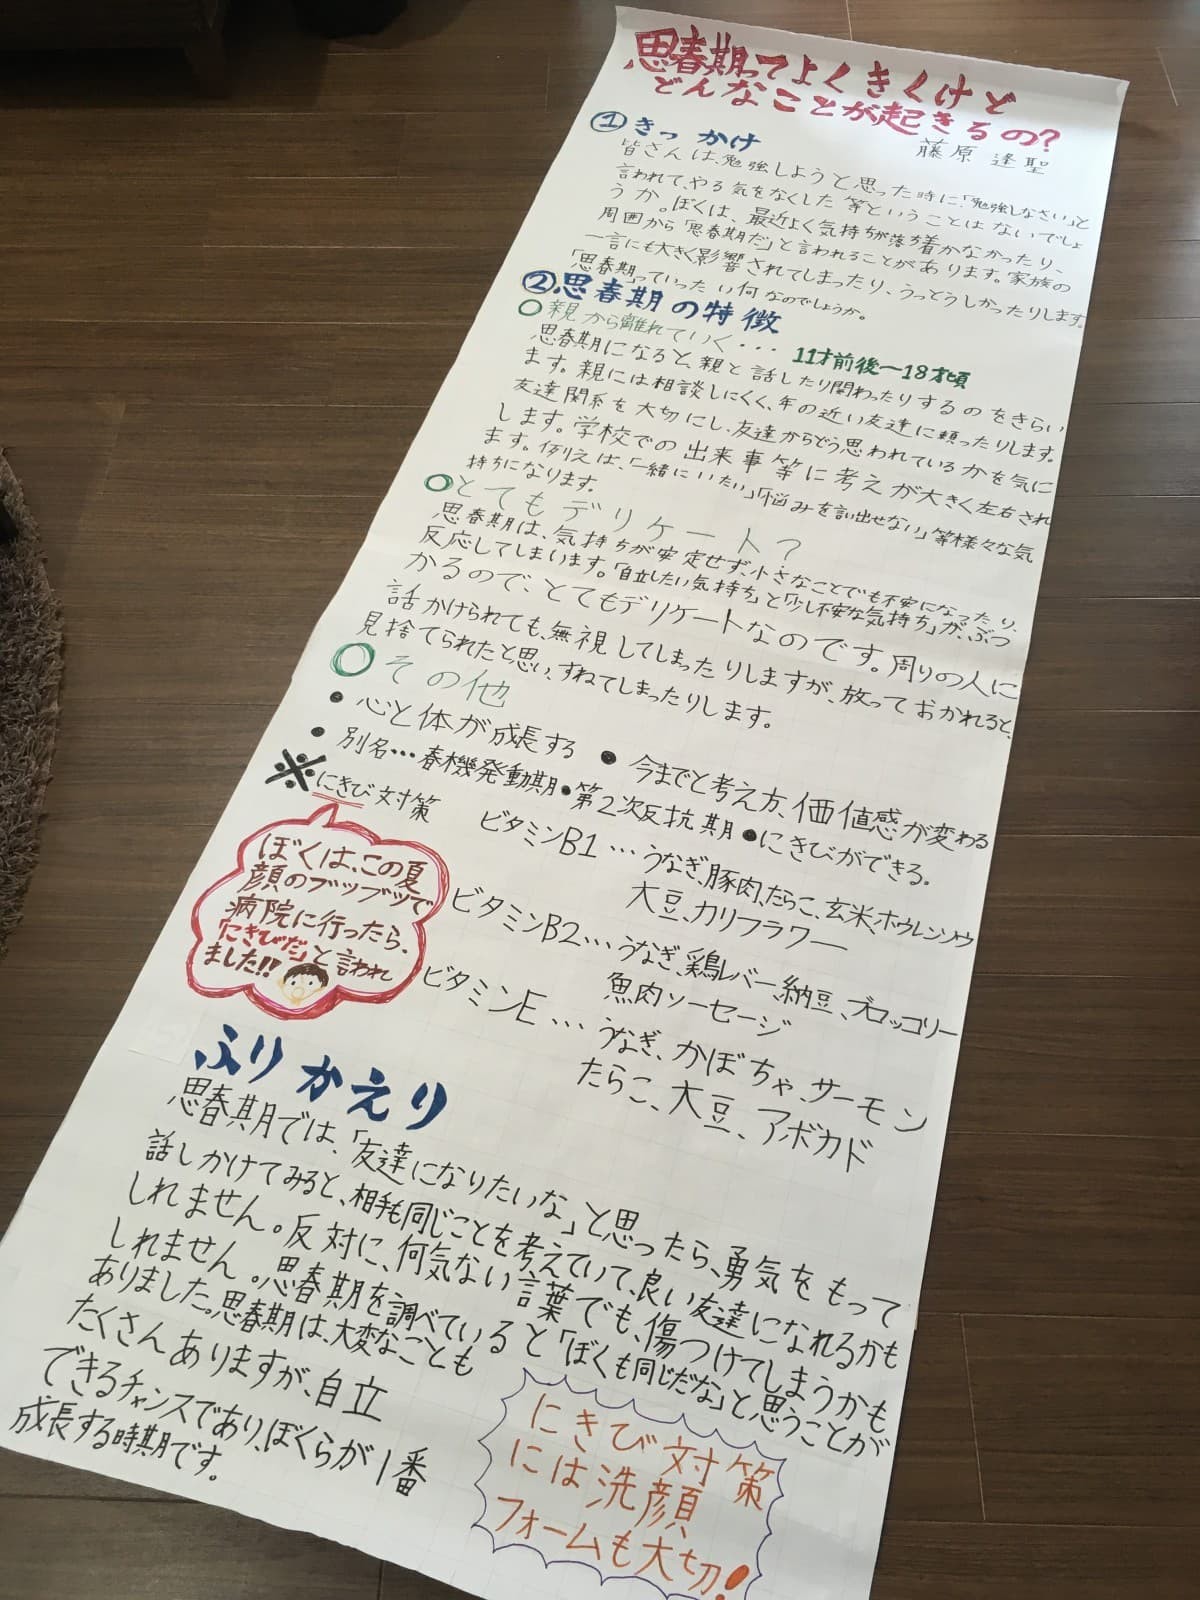 思春期ってよくきくけど
どんなことが起きるの?
藤原 逢聖
①きっかけ
皆さんは、勉強しようと思った時に、「勉強しなさい」と
言われて、やる気をなくした等ということはないでしょ
うか。ぼくは、最近よく気持ちが落ち着かなかったり、
周囲から「思春期だ」と言われることがあります。家族の
一言にも大きく影響されてしまったり、うっとうしかったりします。
「思春期」っていったい何なのでしょうか。
②思春期の特徴
○親から離れていく・・・ 11才前後〜18才頃
思春期になると、親と話したり関わったりするのをきらい
ます。親には相談しにくく、年の近い友達に頼ったりします。
友達関係を大切にし、友達からどう思われているかを気に
します。学校での出来事等に考えが大きく左右され
ます。例えば、「一緒にいたい」「悩みを言い出せない」等様々な気
持ちになります。
○とてもデリケート?
思春期は、気持ちが安定せず、小さなことでも不安になったり、
反応してしまいます。「自立したい気持ち」と「少し不安な気持ち」が、ぶつ
かるので、とてもデリケートなのです。周りの人に
話かけられても、無視してしまったりしますが、放っておかれると、
見捨てられたと思い、すねてしまったりします。
○その他
●心と体が成長する ●今までと考え方、価値感が変わる
●別名・・・春機発動期●第2次反抗期●にきびができる。
※にきび対策 ビタミンB1・・・うなぎ、豚肉、たらこ、玄米、ホウレンソウ
大豆、カリフラワー
ビタミンB2・・・うなぎ、鶏レバー、納豆、ブロッコリー
魚肉ソーセージ
ビタミンE・・・うなぎ、かぼちゃ、サーモン
たらこ、大豆、アボカド
ぼくは、この夏
顔のブツブツで
病院に行ったら、
「にきびだ」と言われ
ました!!
ふりかえり
思春期では、「友達になりたいな」と思ったら、勇気をもって
話しかけてみると、相手も同じことを考えていて、良い友達になれるかも
しれません。反対に、何気ない言葉でも、傷つけてしまうかも
しれません。思春期を調べていると「ぼくも同じだな」と思うことが
ありました。思春期は、大変なことも
たくさんありますが、自立
できるチャンスであり、ぼくらが1番
成長する時期です。
にきび対策
には洗顔
フォームも大切!